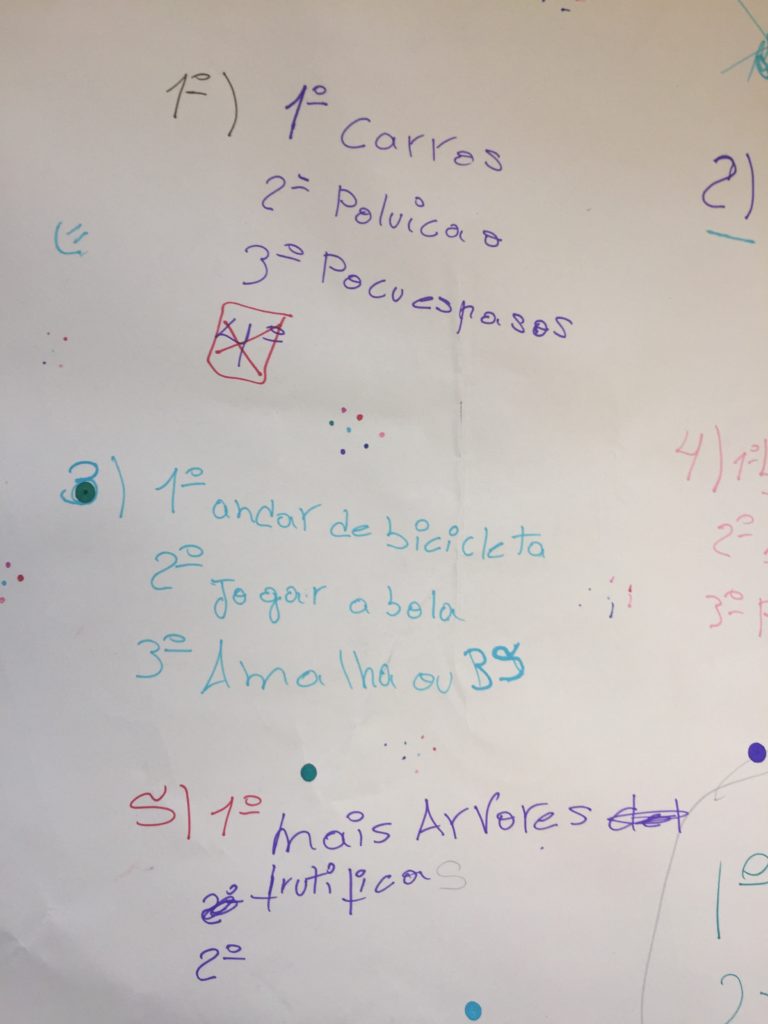 1º) 1º Carros
2º Poluicao
3º Pocuespasos
4º
2)
3) 1º andar de bicicleta
2º Jogar a bola
3º Amalha ou
4) 1º
2º
3º
5) 1º mais Arvores
frutificas
2º
1º